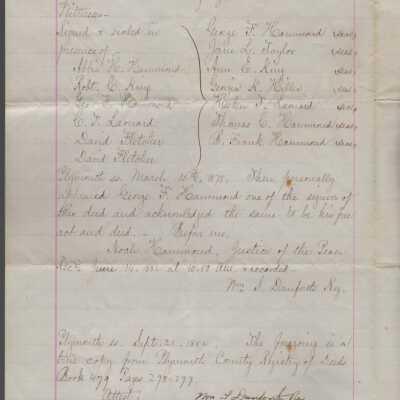 Witness-
Signed & sealed in
presence of -
George F. Hammond seal
Jane L. Taylor seal
Abbie H. Hammond
Ann E. King seal
Robt. C. King
George H. Hillis seal
Geo. F. Hammond
seal
C. F. Lanard
Thomas C. Hammond seal
David Fletcher
B. Frank Hammond seal
David Fletcher
Plymouth ss. March 1878. Then personally
appeared George F. Hammond one of the signers of
this deed and acknowledged the same to be his free
act and deed. - Before me,
Noah Hammond, Justice of the Peace
Rec'd June 14, at 10.10 AM & recorded
Wm. S. Danforth Reg.
Plymouth ss. Sept. 21. The foregoing is a
true copy from Plymouth County Registry of Deeds
Book 479 Page 298-299.
Attest:
Wm S Danforth Reg